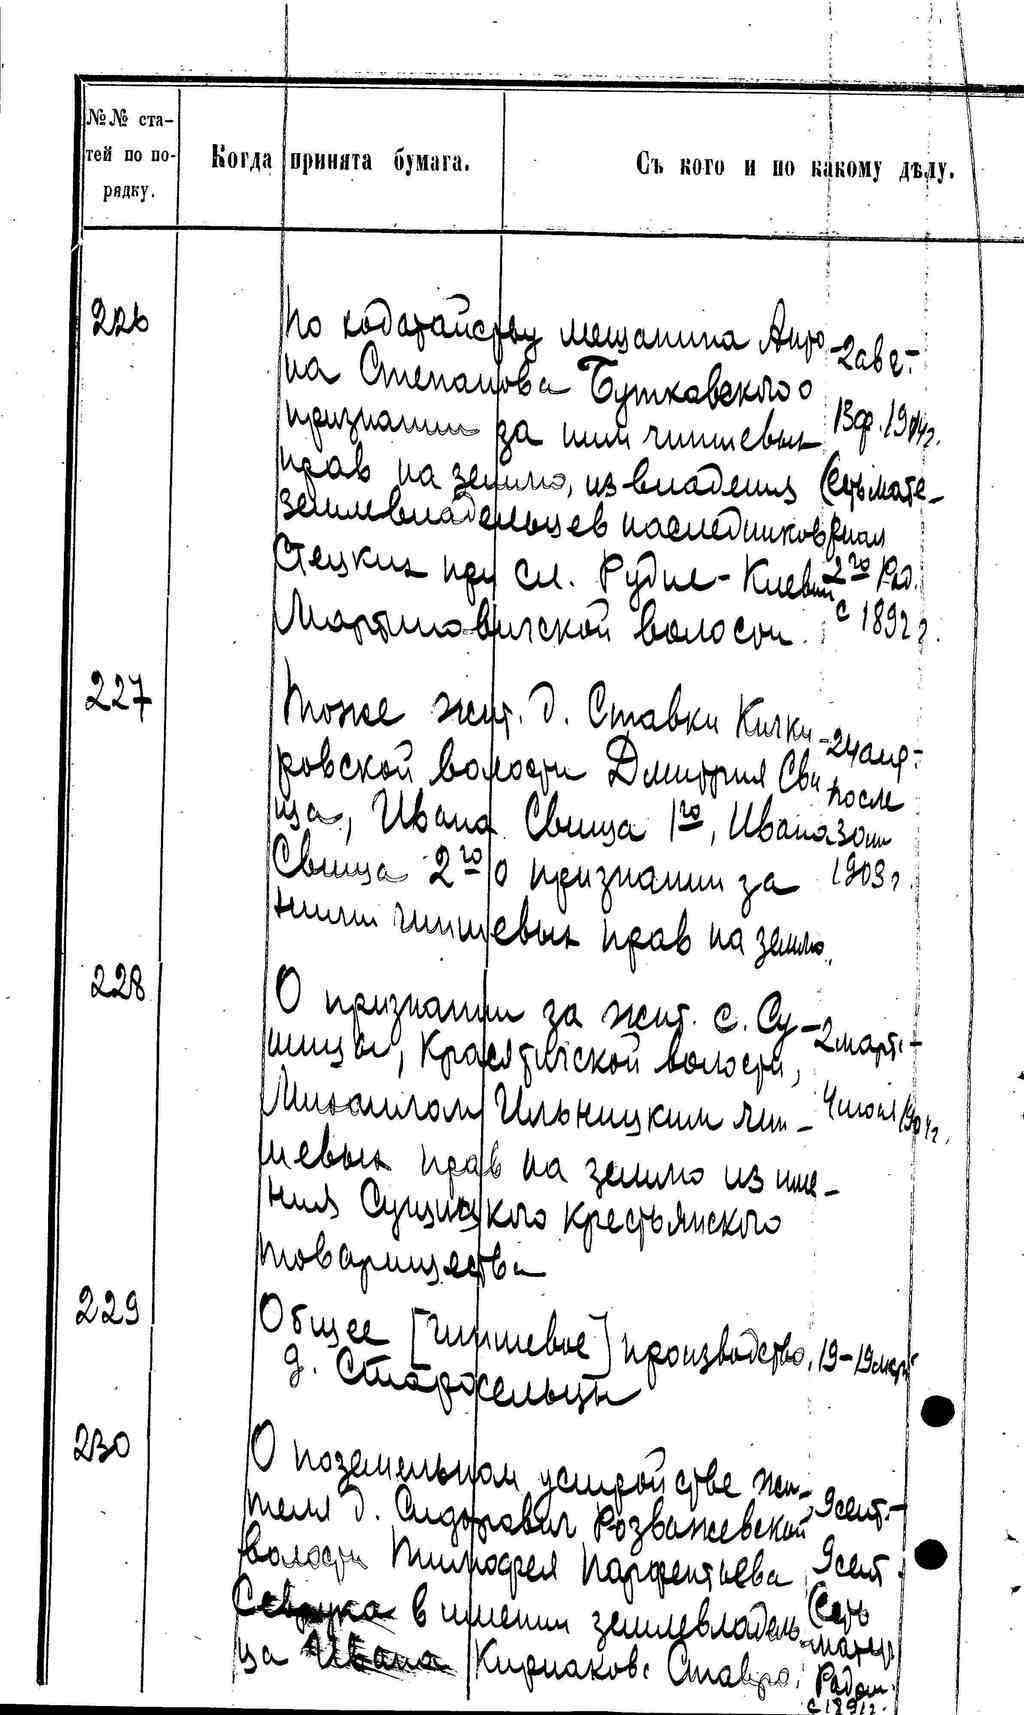 №№ ста-
тей по по-
рядку.
Когда принята бумага.
Съ кого и по какому дѣлу.
226
По ходатайству мещанина Анто
на Степанова Бутковского о
признании за ним чиншевых
прав на землю, из владения
землевладельцев наследников
Стецких при сл. Рудне-
Мартиновичской волости.
-2 авг.-
13 ф. 1904 г.
(есть мате-
риал
2го Рад.
с 1892 г.
227
Тоже жит. д. Ставки Кички
ровской волости Дмитрия Сви
ща, Ивана Свища 1го, Ивана
Свища 2го о признании за
ними чиншевых прав на землю.
-24 апр.-
после
1903 г.
228
О признании за жит. с. Су-
щицы, Красятичской волости,
Михаилом Ильницким чин-
шевых прав на землю из име-
ния Сущицкого крестьянского
товарищества
-2 март.-
4 июля 1904 г.
229
Общее [чиншевое] производство,
д. Старосельцы
19-19 мар
230
О поземельном устройстве жи-
теля д. Сидорович Розважевской
волости Тимофея Парфентьева
Севрука в имении землевладель-
ца Ивана Кириакова Ставро
9 сент.-
9 сент.
(есть
матер.
Радом.
с 1891 г.